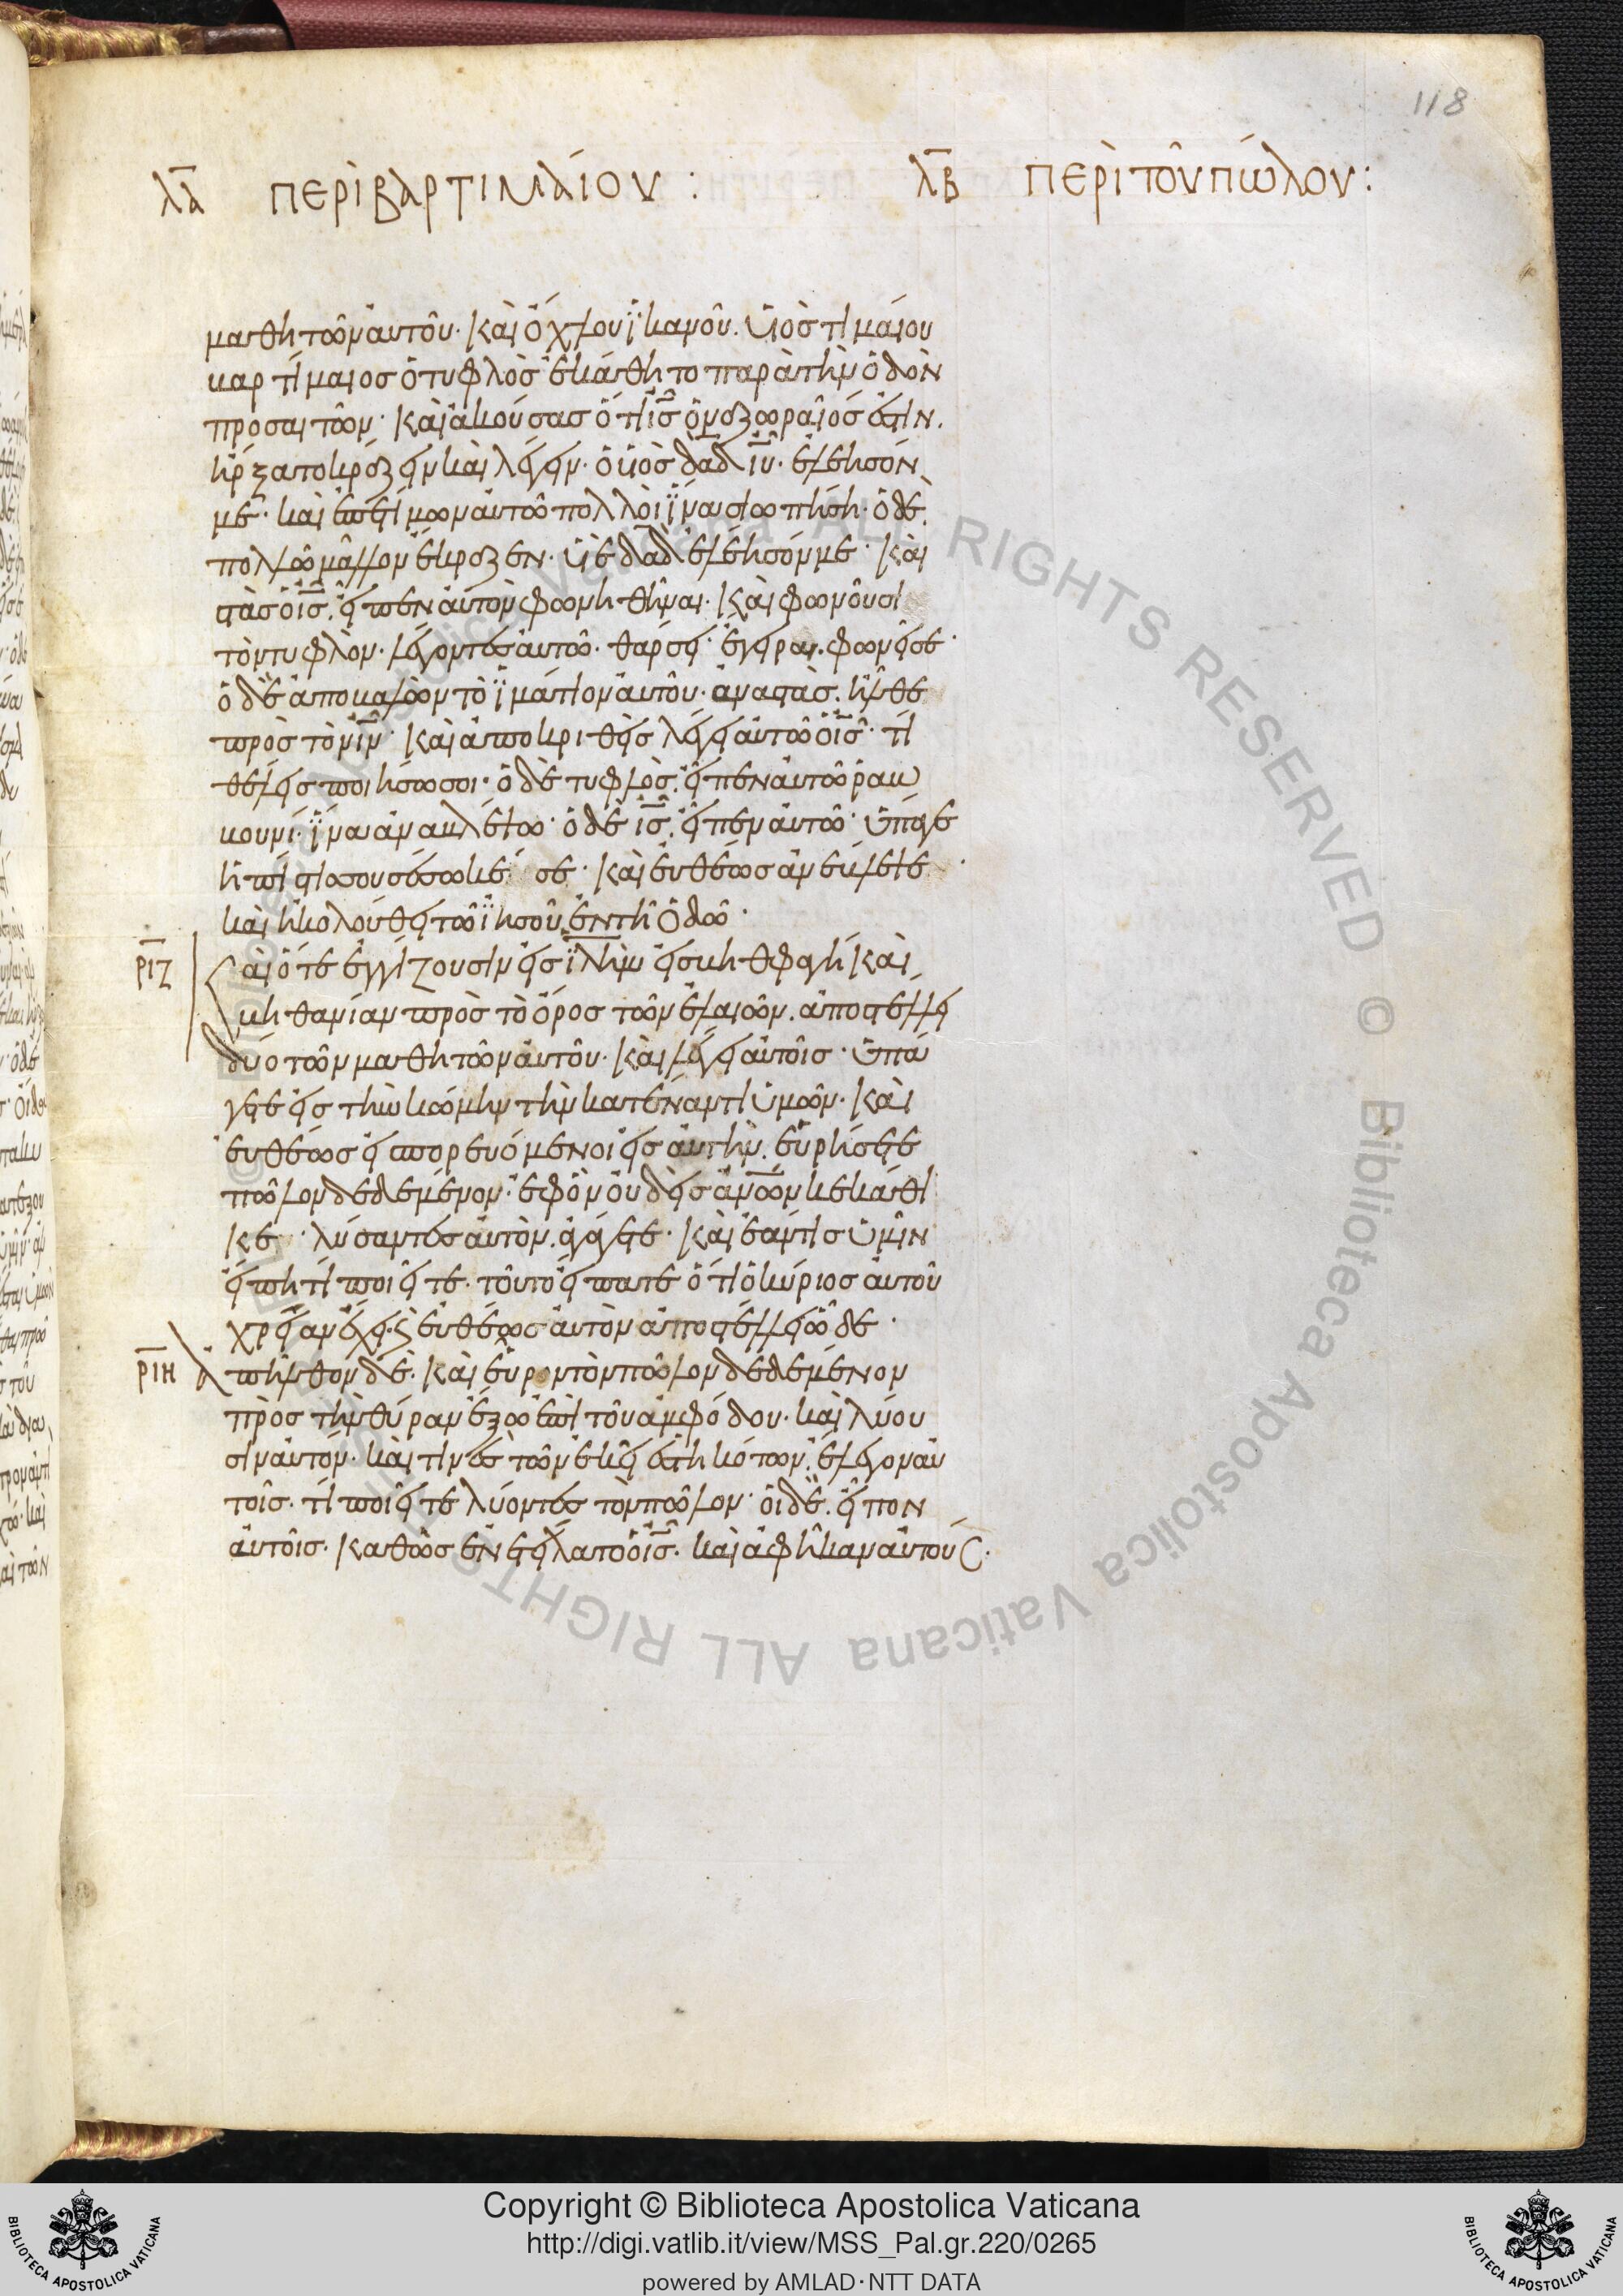 118
λα περὶ βαρτιμαίου :
λβ περὶ τοῦ πώλου :
μαθητῶν αὐτοῦ· καὶ ὄχλου ἱκανοῦ. υἱὸς τιμαίου
βαρτίμαιος ὁ τυφλὸς ἐκάθητο παρὰ τὴν ὁδὸν
προσαιτῶν· καὶ ἀκούσας ὅτι ις ὁ ναζωραῖός ἐστιν.
ἤρξατο κράζειν καὶ λέγειν· ὁ υἱὸς δαδ ιυ· ἐλέησόν
με· καὶ ἐπετίμων αὐτῶ πολλοὶ ἵνα σιωπήση· ὁ δὲ
πολλῶ μᾶλλον ἔκραζεν· υἱὲ δαδ ἐλέησόν με· καὶ
στὰς ὁ ις. εἶπεν αὐτὸν φωνηθῆναι· καὶ φωνοῦσι
τὸν τυφλὸν· λέγοντες αὐτῶ· θάρσει· ἔγειραι. φωνεῖ σε·
ὁ δὲ ἀποβαλὼν τὸ ἱμάτιον αὐτοῦ· ἀναστὰς. ἦλθε
πρὸς τὸν ιν· καὶ ἀποκριθεὶς λέγει αὐτῶ ὁ ις· τί
θέλεις ποιήσω σοι· ὁ δὲ τυφλὸς. εἶπεν αὐτῶ ραβ
βουνί· ἵνα ἀναβλέψω· ὁ δὲ ις. εἶπεν αὐτῶ· ὕπαγε
ἡ πίστις σου σέσωκέ σε· καὶ εὐθέως ἀνέβλεψε·
καὶ ἠκολούθει τῶ ἰησοῦ ἐν τῆ ὁδῶ·
ριζ Καὶ ὅτε ἐγγίζουσιν εἰς ιλημ εἰς βηθφαγὴ καὶ
βηθανίαν πρὸς τὸ ὄρος τῶν ἐλαιῶν. ἀποστέλλει
δύο τῶν μαθητῶν αὐτοῦ· καὶ λέγει αὐτοῖς· ὑπά
γετε εἰς τὴν κώμην τὴν κατέναντι ὑμῶν· καὶ
εὐθέως εἰσπορευόμενοι εἰς αὐτὴν. εὑρήσετε
πῶλον δεδεμένον· ἐφ ὃν οὐδεὶς ανων κεκάθι
κε· λύσαντες αὐτὸν. ἀγάγετε· καὶ ἐάν τις ὑμῖν
εἴπη τί ποιεῖτε· τοῦτο εἴπατε ὅτι ὁ κύριος αὐτοῦ
χρείαν ἔχει· ϛ εὐθέως αὐτὸν ἀποστέλλει ὧδε·
ριη ἀπῆλθον δὲ· καὶ εὗρον τὸν πῶλον δεδεμένον
πρὸς τὴν θύραν ἔξω ἐπὶ τοῦ ἀμφόδου· καὶ λύου
σιν αὐτόν· καὶ τινὲς τῶν ἐκεῖ ἑστηκότων. ἔλεγον αὐ
τοῖς· τί ποιεῖτε λύοντες τὸν πῶλον· οἱ δὲ. εἶπον
αὐτοῖς· καθὼς ἐνετείλατο ὁ ις· καὶ ἀφῆκαν αὐτούς·
Copyright © Biblioteca Apostolica Vaticana
http://digi.vatlib.it/view/MSS_Pal.gr.220/0265
powered by AMLAD·NTT DATA